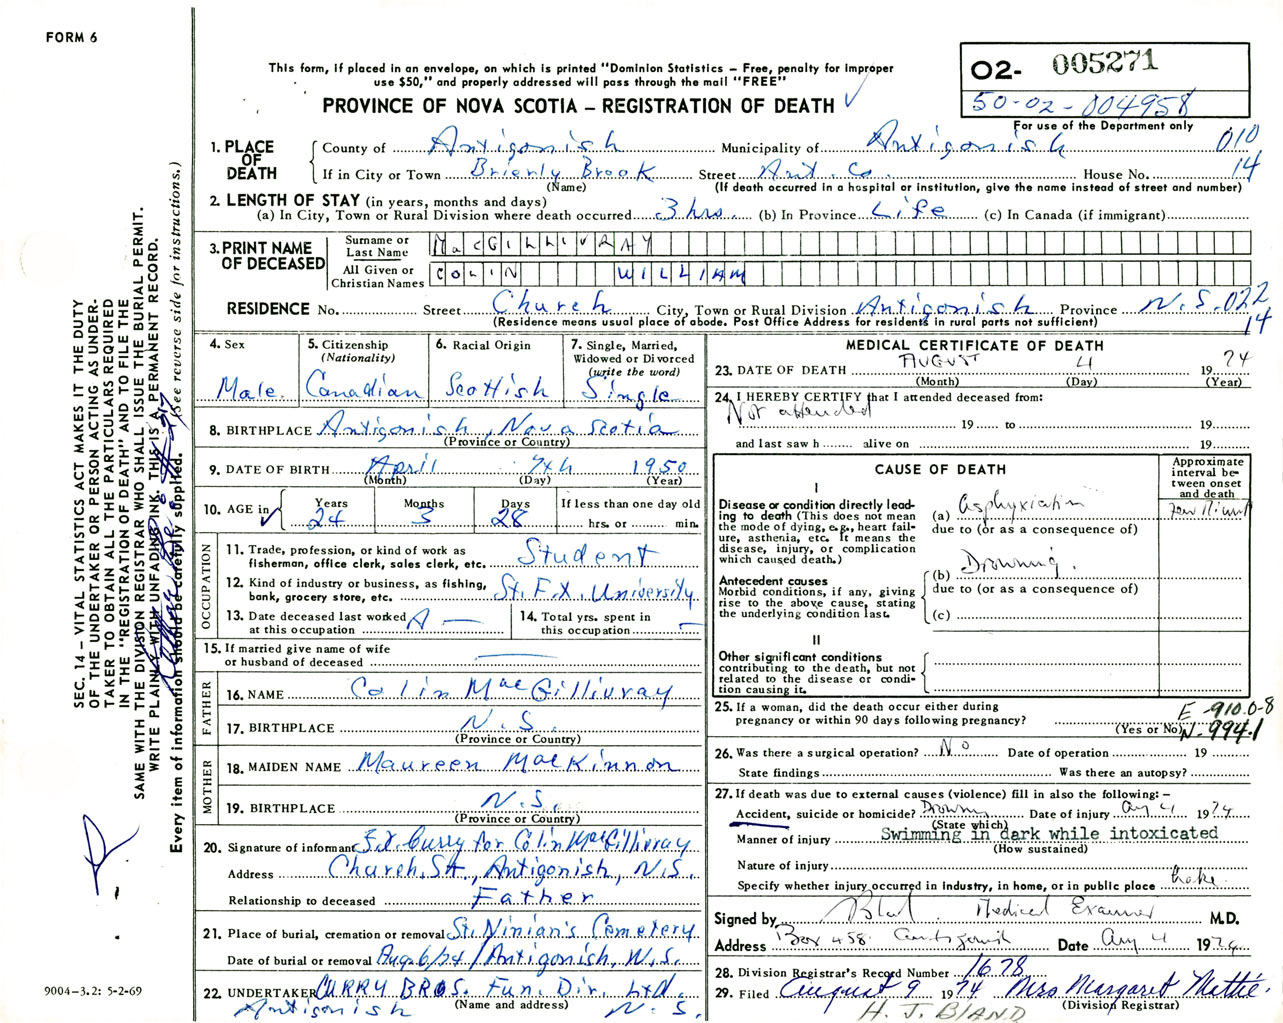 FORM 6
This form, if placed in an envelope, on which is printed "Dominion Statistics – Free, penalty for improper
use $50," and properly addressed will pass through the mail "FREE"
PROVINCE OF NOVA SCOTIA – REGISTRATION OF DEATH
02- 005271
50-02-004958
For use of the Department only
010
14
1. PLACE OF DEATH
County of Antigonish Municipality of Antigonish
If in City or Town Brierly Brook Street Ant. Co. House No.
(Name) (If death occurred in a hospital or institution, give the name instead of street and number)
2. LENGTH OF STAY (in years, months and days)
(a) In City, Town or Rural Division where death occurred 3 hrs. (b) In Province Life (c) In Canada (if immigrant)
3. PRINT NAME OF DECEASED
Surname or Last Name MacGILLIVRAY
All Given or Christian Names COLIN WILLIAM
RESIDENCE No. Street Church City, Town or Rural Division Antigonish Province N.S. 022
(Residence means usual place of abode. Post Office Address for residents in rural parts not sufficient) 14
4. Sex Male
5. Citizenship (Nationality) Canadian
6. Racial Origin Scottish
7. Single, Married, Widowed or Divorced (write the word) Single
8. BIRTHPLACE Antigonish, Nova Scotia
(Province or Country)
9. DATE OF BIRTH April 7th 1950
(Month) (Day) (Year)
10. AGE in Years 24 Months 3 Days 28 If less than one day old hrs. or min.
OCCUPATION
11. Trade, profession, or kind of work as
fisherman, office clerk, sales clerk, etc. Student
12. Kind of industry or business, as fishing,
bank, grocery store, etc. St. F.X. University
13. Date deceased last worked
at this occupation
14. Total yrs. spent in
this occupation
15. If married give name of wife
or husband of deceased
FATHER
16. NAME Colin MacGillivray
17. BIRTHPLACE N.S.
(Province or Country)
MOTHER
18. MAIDEN NAME Maureen MacKinnon
19. BIRTHPLACE N.S.
(Province or Country)
20. Signature of informant F.X. Curry for Colin MacGillivray
Address Church St., Antigonish, N.S.
Relationship to deceased Father
21. Place of burial, cremation or removal St. Ninian's Cemetery
Date of burial or removal Aug. 6/74 / Antigonish, N.S.
22. UNDERTAKER CURRY BROS. Fun. Dir. Ltd.
(Name and address)
Antigonish N.S.
MEDICAL CERTIFICATE OF DEATH
23. DATE OF DEATH AUGUST 4 1974
(Month) (Day) (Year)
24. I HEREBY CERTIFY that I attended deceased from:
Not attended
19 to 19
and last saw h alive on 19
CAUSE OF DEATH
Approximate interval between onset and death
I
Disease or condition directly leading
to death (This does not mean
the mode of dying, e.g., heart failure,
asthenia, etc. It means the
disease, injury, or complication
which caused death.)
(a) Asphyxiation few minutes
due to (or as a consequence of)
Antecedent causes
Morbid conditions, if any, giving
rise to the above cause, stating
the underlying condition last.
(b) Drowning.
due to (or as a consequence of)
(c)
II
Other significant conditions
contributing to the death, but not
related to the disease or condition
causing it.
25. If a woman, did the death occur either during
pregnancy or within 90 days following pregnancy?
(Yes or No)
E-910.0-8
N-994.1
26. Was there a surgical operation? No Date of operation 19
State findings Was there an autopsy?
27. If death was due to external causes (violence) fill in also the following: –
Accident, suicide or homicide? Drowning Date of injury Aug 4 1974
(State which)
Manner of injury Swimming in dark while intoxicated
(How sustained)
Nature of injury
Specify whether injury occurred in industry, in home, or in public place Lake
Signed by Medical Examiner M.D.
Address Box 458 Antigonish Date Aug 4 1974
28. Division Registrar's Record Number 1678
29. Filed August 9 1974 Mrs Margaret Mattie.
(Division Registrar)
H. J. BLAND
9004–3.2: 5-2-69
SEC. 14 – VITAL STATISTICS ACT MAKES IT THE DUTY
OF THE UNDERTAKER OR PERSON ACTING AS UNDERTAKER
TO OBTAIN ALL THE PARTICULARS REQUIRED
IN THE "REGISTRATION OF DEATH" AND TO FILE THE
SAME WITH THE DIVISION REGISTRAR WHO SHALL ISSUE THE BURIAL PERMIT.
WRITE PLAINLY WITH UNFADING INK. THIS IS A PERMANENT RECORD.
Every item of information should be carefully supplied. (See reverse side for instructions.)